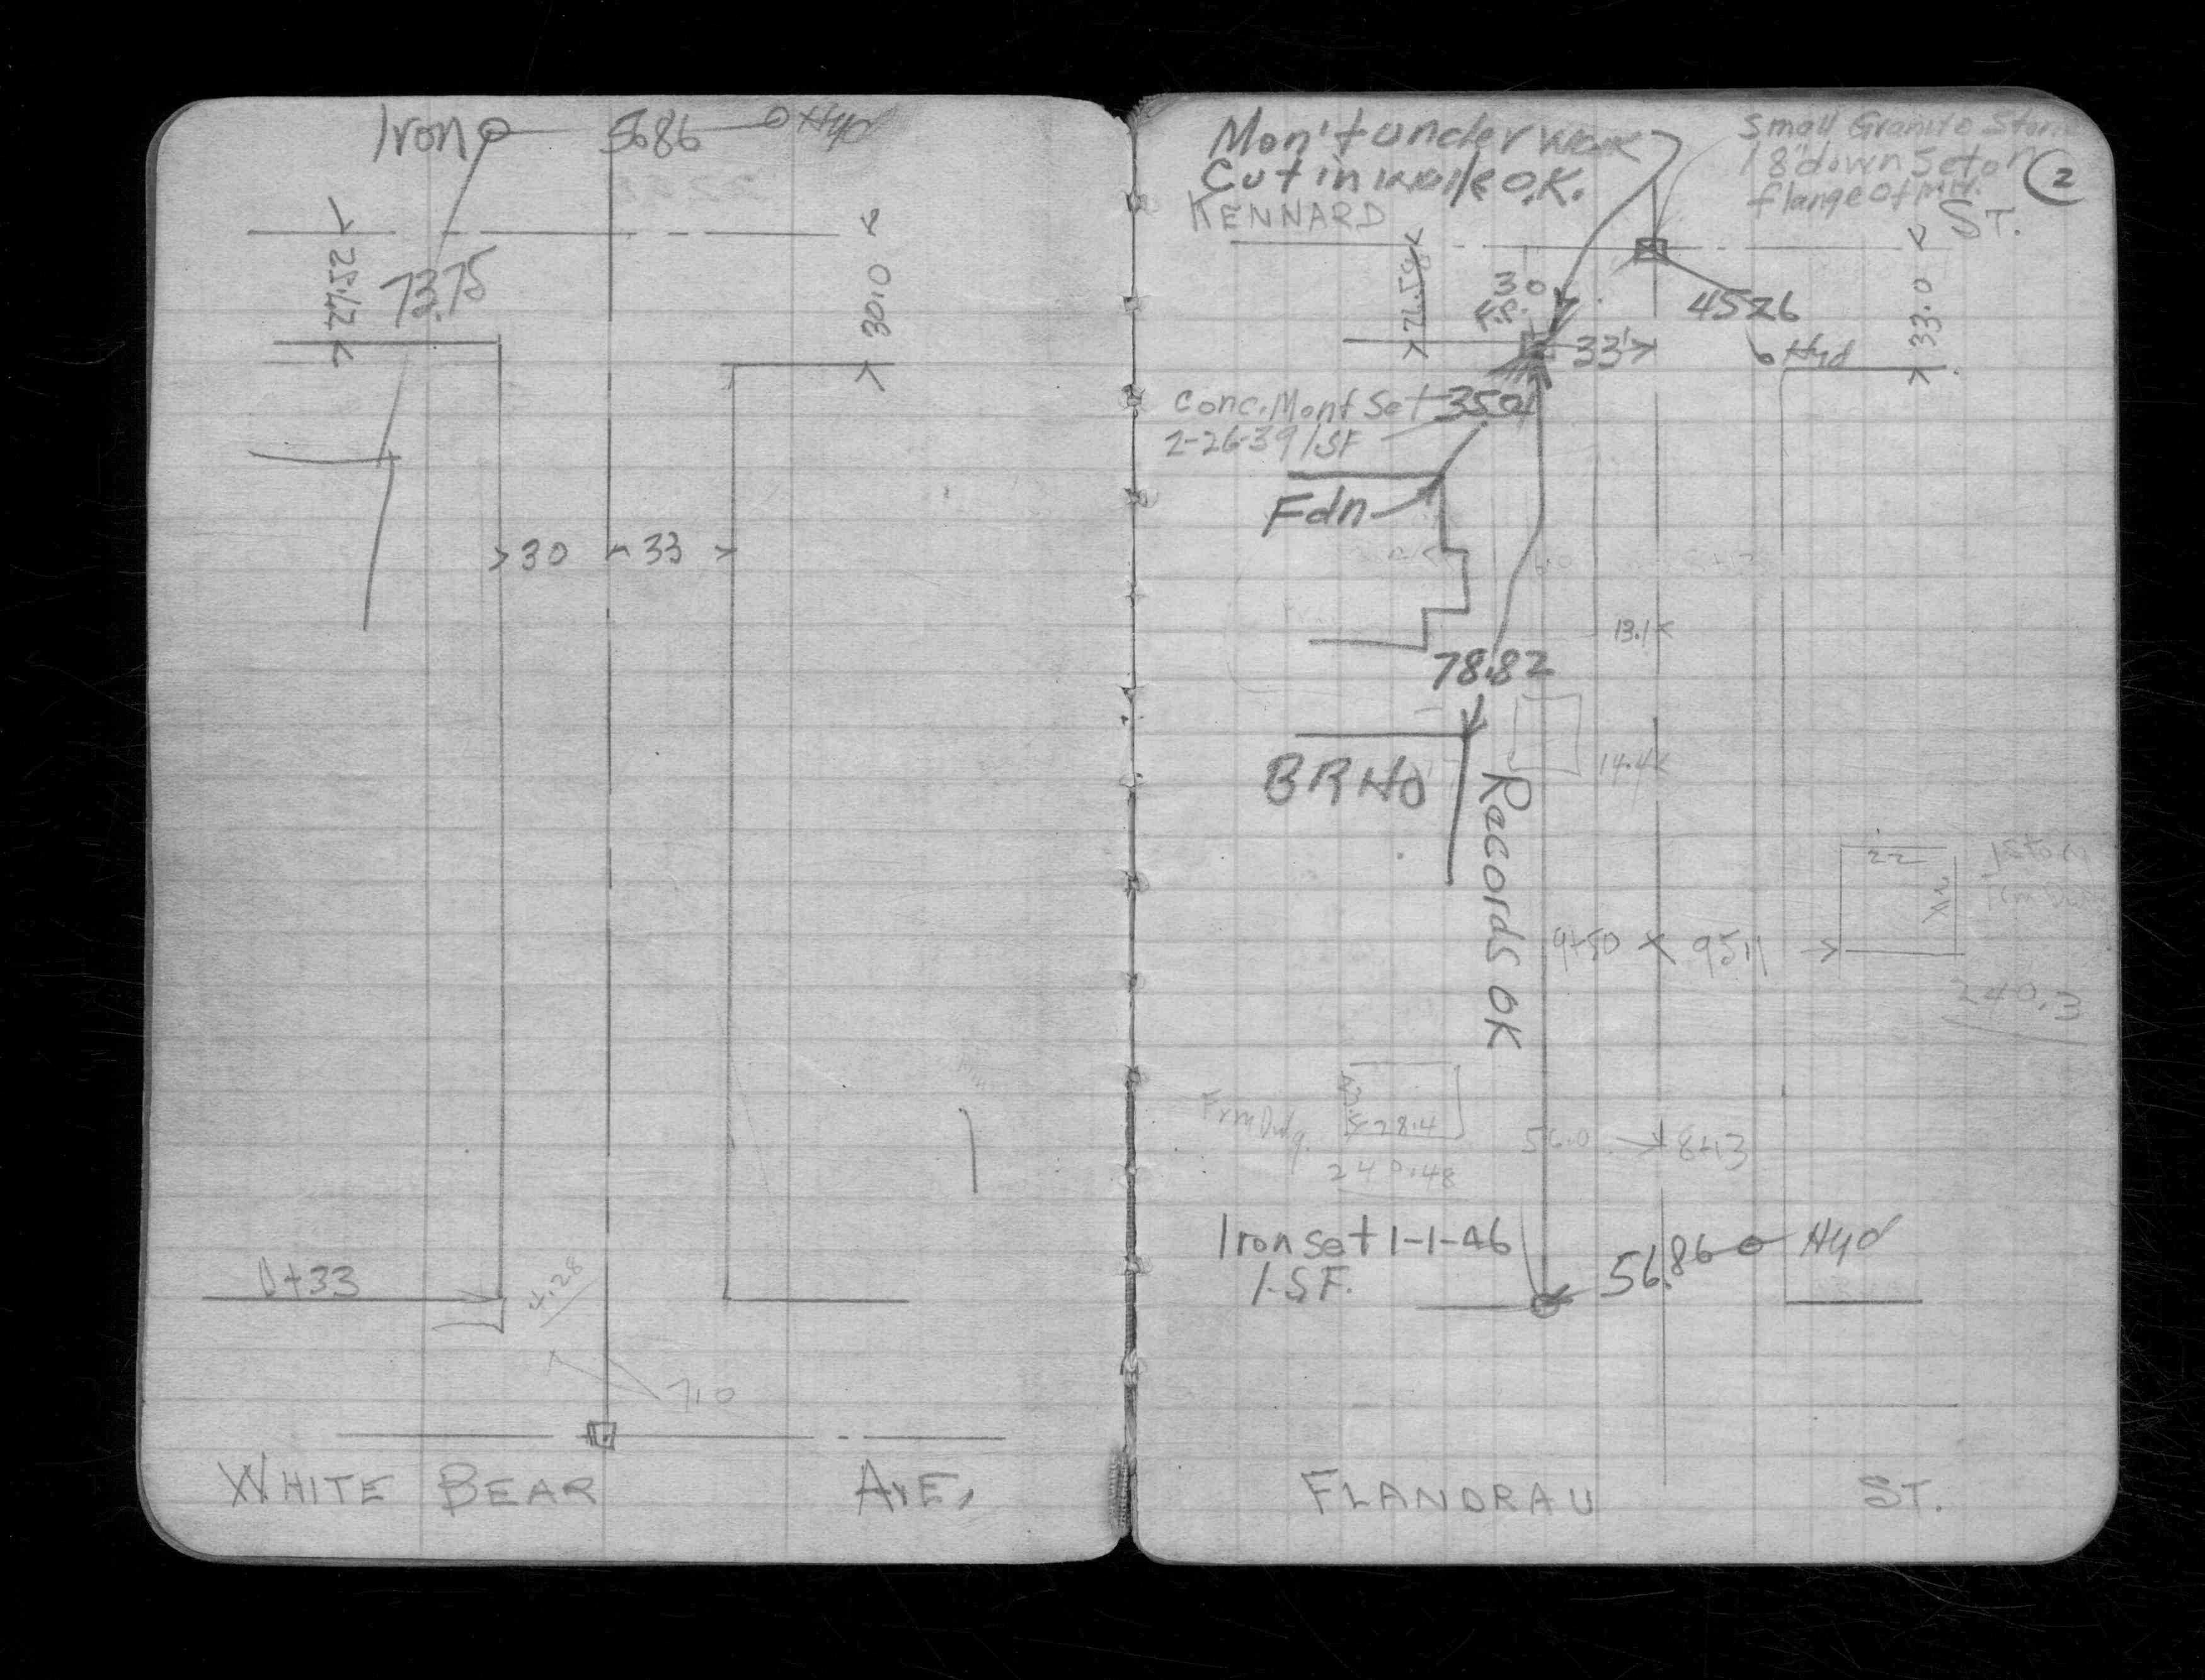 Iron 56.86 Hyd
25.42
73.75
30.0
30 33
0+33
4.28
7.0
WHITE BEAR AVE.
Mon't under walk
Cut in walk O.K.
Small Granite Stone
18" down Set on
flange of
2
KENNARD ST.
30
33'
45.26
Hyd
33.0
Conc. Mont Set 35.01
2-26-39 /SF
Fdn
13.1
78.82
14.4
BR HO
Records OK
22
1 Story
Frm Dwlg
9+50 95.11
240.3
Frm Dwlg.
28.4
56.0 8+13
240.48
Iron set 1-1-46
1-SF.
56.86 Hyd
FLANDRAU ST.